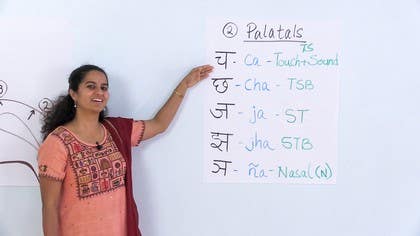 ② Palatals
TS
च - Ca - Touch+Sound
छ - Cha - TSB
ज - ja - ST
झ - jha STB
ञ - ña - Nasal (N)
②